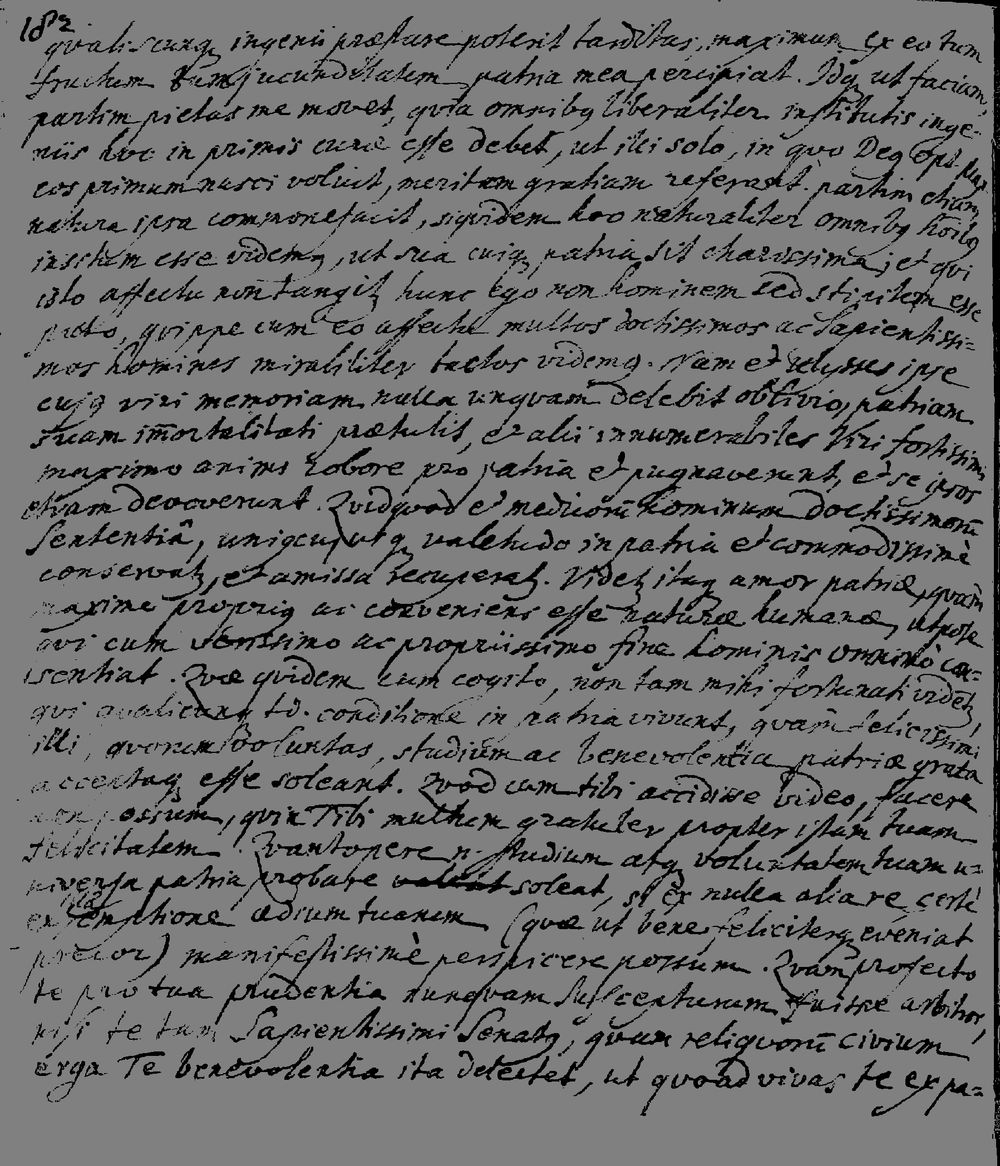 182
qvaliscunq ingenii præstare poterit tarditas, maximum ex eo tum
fructum tum jucunditatem patria mea percipiat. Idq ut faciam,
partim pietas me movet, qvia omnibq liberaliter institutis inge-
niis hoc in primis curæ esse debet, ut illi solo, in qvo Deq opt. Max
eos primum nasci voluit, meritam gratiam referant. partim etiam
natura ipsa commonefacit, siqvidem hoc naturaliter omnibq hoībq
insitum esse videmq, ut sua cuiq patria sit charissima; et qvi
isto affectu non tangit, hunc ego non hominem sed stipitem esse
puto, qvippe cum eo affectu multos doctissimos ac Sapientissi-
mos homines mirabiliter tactos videmq. Nam et Ulysses ipse
cujq viri memoriam nulla unqvam delebit oblivio, patriam
suam im̄ortalitati prætulit, et alii innumerabiles Viri fortissimi
maximo animi robore pro patria et pugnaverunt, et se ipsos
etiam devoverunt. Qvidqvod et medicorū hominum doctissimorū
Sententiâ, uniqcujusq valetudo in patria et commodissimè
conservat, et amissa recuperat. Videt itaq amor patriæ, qvam̄
maxime propriq ac conveniens esse naturæ humanæ, utpote
qvi cum verissimo ac propriissimo fine hominis omninò con-
sentiat. Qvæ qvidem cum cogito, non tam mihi fortunati vident,
qvi qvalicunq td. conditione in patria vivunt, qvam̄ felicissimi
illi, qvorum voluntas, studium ac benevolentia patriæ grata
acceptaq esse soleant. Qvod cum tibi accidisse video, facere
non possum, qvin Tibi multum gratuler propter istam tuam
felicitatem. Qvantopere n. studium atq voluntatem tuam u-
niversa patria probare soleat, si ex nulla alia re certè
ex emptione ædium tuarum (qvæ ut bene feliciterq eveniat
precor) manifestissimè perspicere possum. Qvam profecto
te pro tua prudentia nunqvam suscepturum fuisse arbitror,
nisi te tum Sapientissimi Senatq, qvam reliqvorū civium
erga Te benevolentia ita delectet, ut qvoad vivas te ex pa-